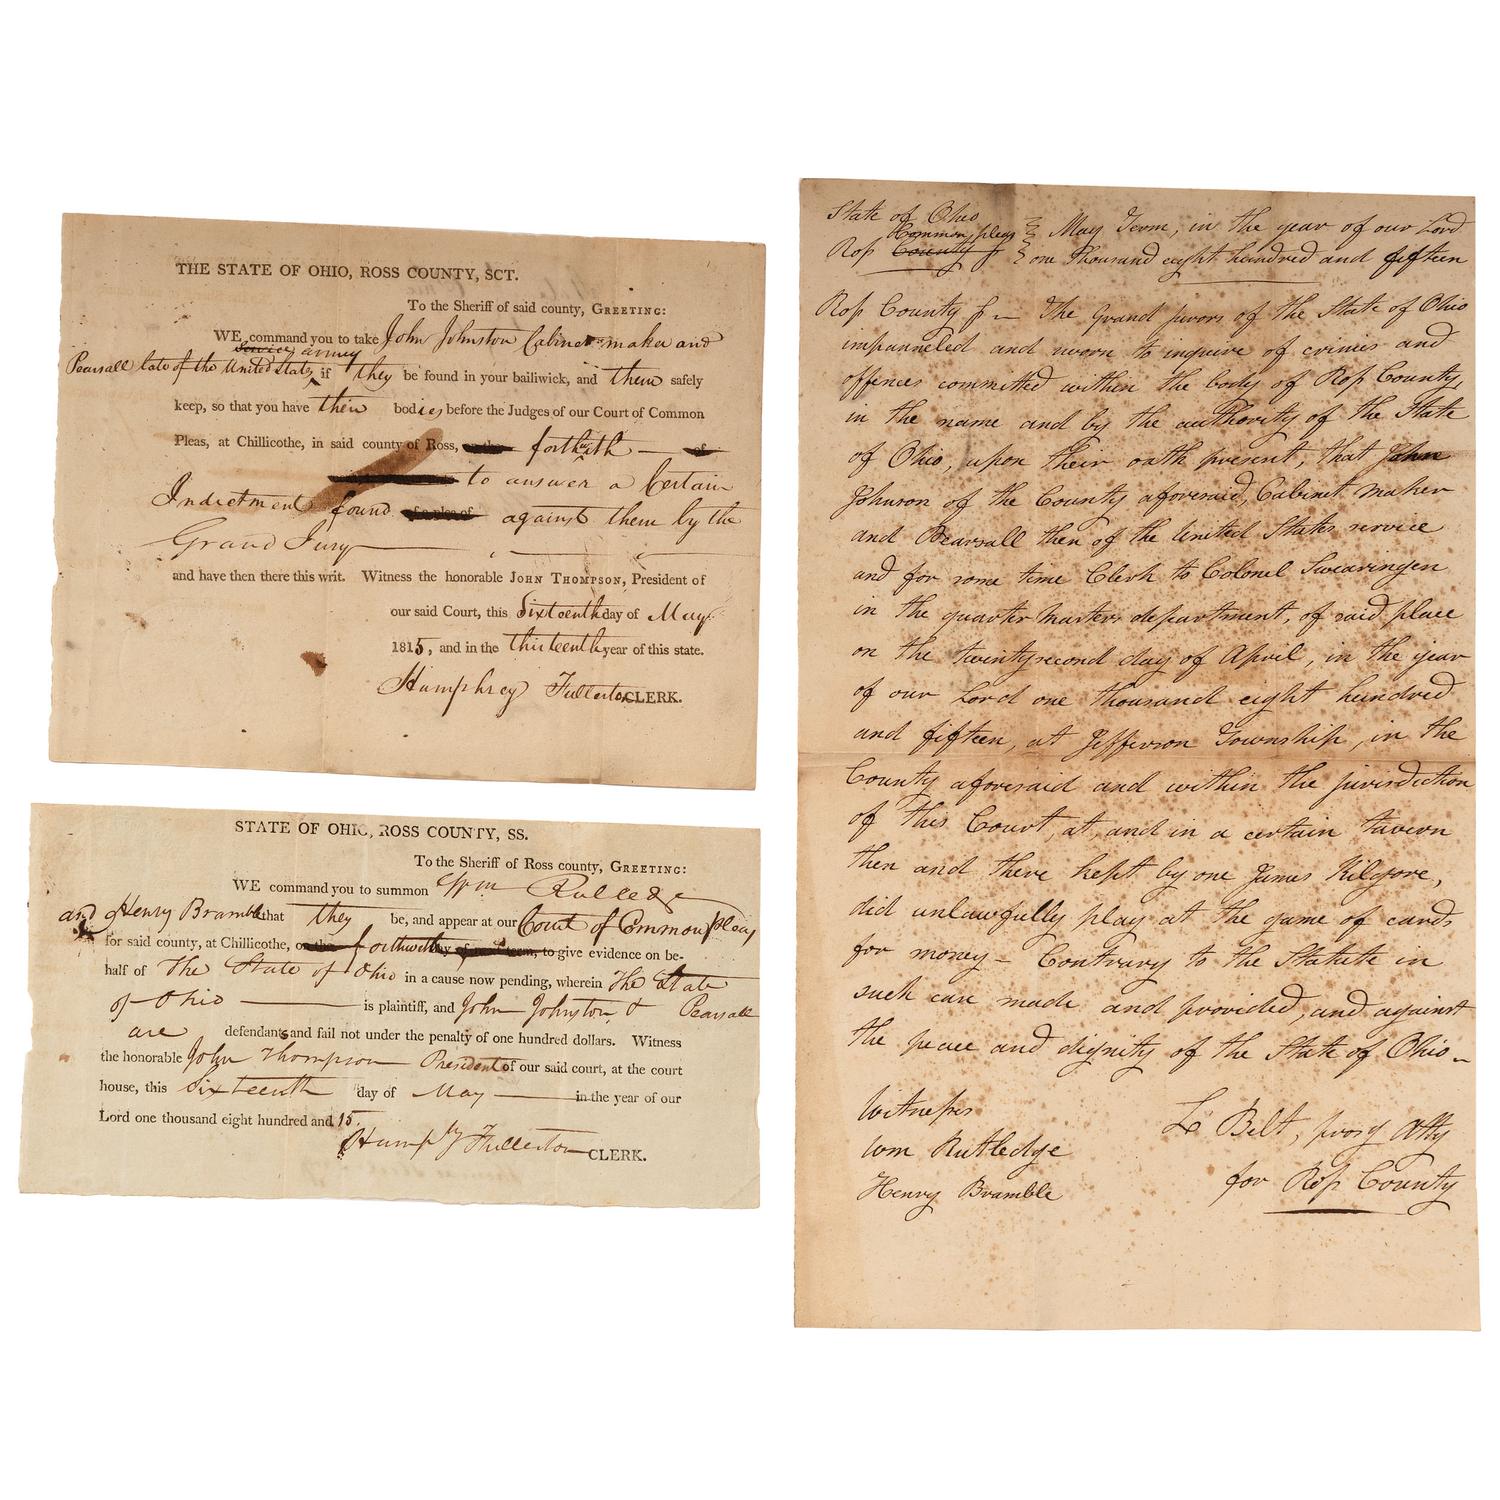 THE STATE OF OHIO, ROSS COUNTY, SCT.
To the Sheriff of said county, GREETING:
WE command you to take John Johnston Cabinet maker and
army
Pearsall late of the United States if they be found in your bailiwick, and them safely
keep, so that you have their bodies before the Judges of our Court of Common
Pleas, at Chillicothe, in said county of Ross, forthwith —
to answer a Certain
Indictment found against them by the
Grand Jury
and have then there this writ. Witness the honorable JOHN THOMPSON, President of
our said Court, this Sixteenth day of May
1815, and in the thirteenth year of this state.
Humphrey Fullerton CLERK.
STATE OF OHIO, ROSS COUNTY, SS.
To the Sheriff of Ross county, GREETING:
WE command you to summon Wm Rutledge
and Henry Bramble that they be, and appear at our Court of Common pleas
for said county, at Chillicothe, forthwith to give evidence on be-
half of The State of Ohio in a cause now pending, wherein The State
of Ohio is plaintiff, and John Johnston & Pearsall
are defendants and fail not under the penalty of one hundred dollars. Witness
the honorable John Thompson President of our said court, at the court
house, this Sixteenth day of May in the year of our
Lord one thousand eight hundred and 15.
Humphy Fullerton CLERK.
State of Ohio
Common pleas } May Term, in the year of our Lord
Ross County } one thousand eight hundred and fifteen
Ross County ss — The Grand jurors of the State of Ohio
impanneled and sworn to inquire of crimes and
offences committed within the body of Ross County,
in the name and by the authority of the State
of Ohio, upon their oath present, that John
Johnson of the County aforesaid, Cabinet maker
and Pearsall then of the United States service
and for some time Clerk to Colonel Swearingen
in the quarter Masters department, of said place
on the twenty second day of April, in the year
of our Lord one thousand eight hundred
and fifteen, at Jefferson Township, in the
County aforesaid and within the jurisdiction
of this Court, at, and in a certain tavern
then and there kept by one James Kilgore,
did unlawfully play at the game of cards
for money — Contrary to the Statute in
such case made and provided, and against
the peace and dignity of the State of Ohio —
Witnesses
Wm Rutledge
Henry Bramble
L. Belt, prosg Atty
for Ross County